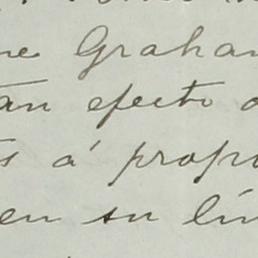 ne Graham
an efecto
s á propo
en su lin